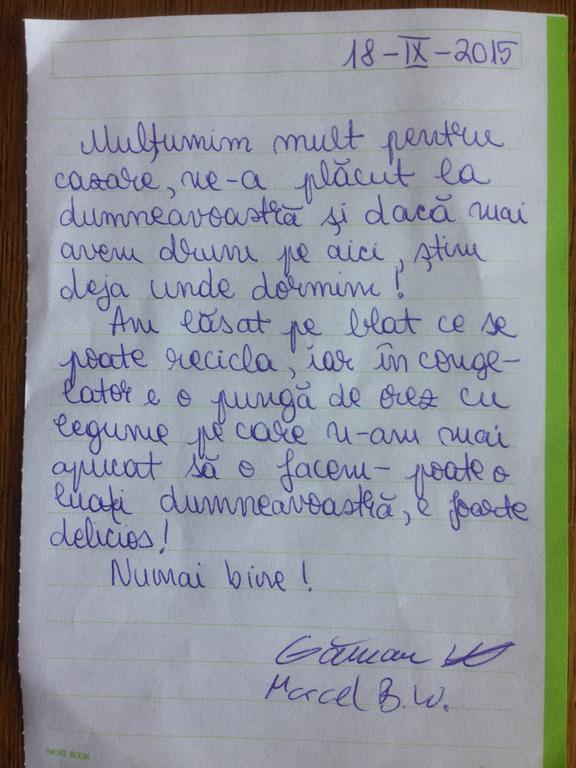 18-IX-2015
Mulțumim mult pentru
cazare, ne-a plăcut la
dumneavoastră și dacă mai
avem drum pe aici, știm
deja unde dormim!
Am lăsat pe blat ce se
poate recicla, iar în conge-
lator e o pungă de orez cu
legume pe care n-am mai
apucat să o facem - poate o
luați dumneavoastră, e foarte
delicios!
Numai bine!
Marcel B.W.
NOTE BOOK